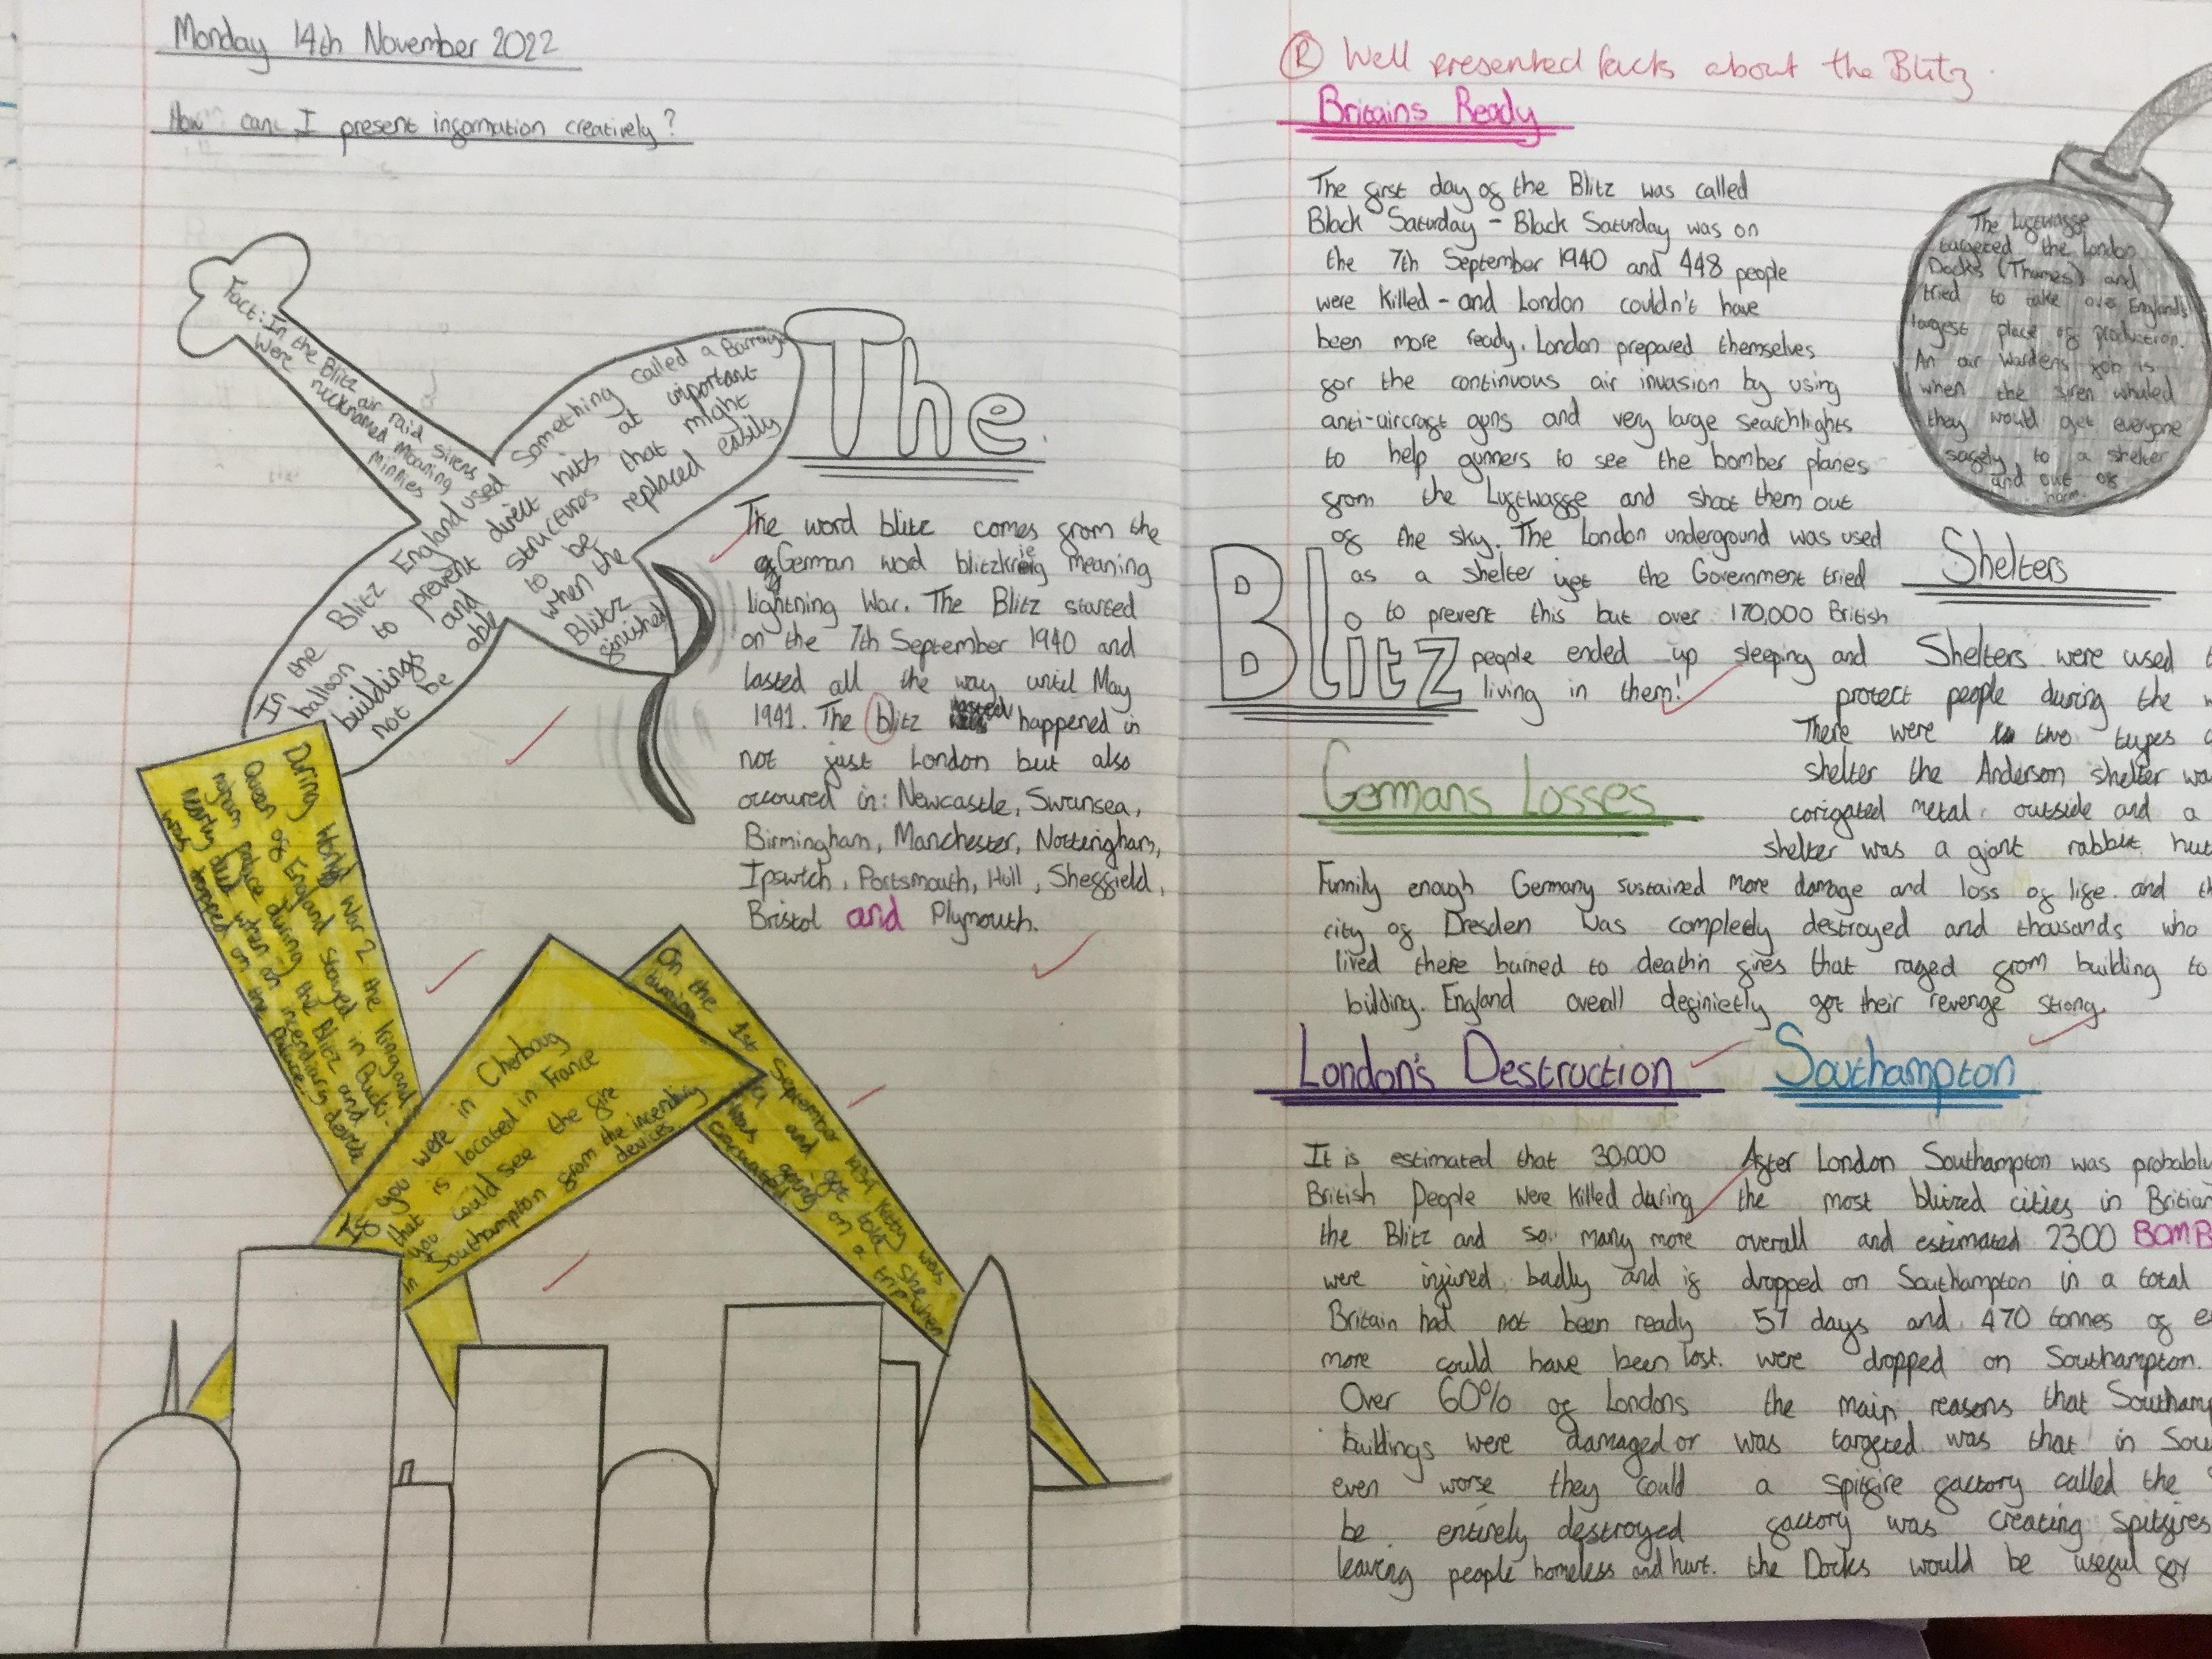 Monday 14th November 2022
How can I present information creatively?
Fact: In the Blitz air raid sirens
were nicknamed Moaning
Minnies
In the Blitz England used Something called a Barrage
balloon to prevent direct hits at important
buildings and structures that might
not be able to be replaced easily
when the
Blitz
finished
The
The word blitz comes from the
German word blitzkrieg meaning
lightning War. The Blitz started
on the 7th September 1940 and
lasted all the way until May
1941. The blitz happened in
not just London but also
occoured in: Newcastle, Swansea,
Birmingham, Manchester, Nottingham,
Ipswich, Portsmouth, Hull, Sheffield,
Bristol and Plymouth.
During World War 2 the King and
Queen of England stayed in Buck-
ingham palace during the Blitz and
nearly died when an incendiary device
was dropped on the palace.
If you were in Cherboug
that is located in France
you could see the fire
in Southampton from the incendiary
devices
On the 1st September 1939 Kitty was
turning and got told she
was going on a trip when
evacuated!
® Well presented facts about the Blitz.
Britains Ready
The first day of the Blitz was called
Black Saturday - Black Saturday was on
the 7th September 1940 and 448 people
were killed - and London couldn't have
been more ready. London prepared themselves
for the continuous air invasion by using
anti-aircraft guns and very large searchlights
to help gunners to see the bomber planes
from the Luftwaffe and shoot them out
of the sky. The London underground was used
as a shelter yet the Government tried
to prevent this but over 170,000 British
people ended up sleeping and
living in them!
Blitz
The Luftwaffe
targeted the London
Docks (Thames) and
tried to take over England's
largest place of production.
An air wardens job is
when the siren whaled
they would get everyone
safely to a shelter
and out of
harm.
Shelters
Shelters were used
protect people during the
There were two types
shelter the Anderson shelter
corigated metal outside and a
shelter was a giant rabbit
Germans Losses
Funnily enough Germany sustained more damage and loss of life and
city of Dresden was completely destroyed and thousands who
lived there burned to death in fires that raged from building to
bilding. England overall definietly got their revenge strong.
London's Destruction
It is estimated that 30,000
British People were killed during
the Blitz and so many more
were injured badly and if
Britain had not been ready
more could have been lost.
Over 60% of Londons
buildings were damaged or
even worse they could
be entirely destroyed
leaving people homeless and hurt.
Southampton
After London Southampton was probably
the most blitzed cities in
overall and estimated 2300 BOMB
dropped on Southampton in a total
57 days and 470 tonnes of
were dropped on Southampton.
the main reasons that
was targeted was that in
a Spitfire factory called the
factory was creating Spitfires
the Docks would be useful for